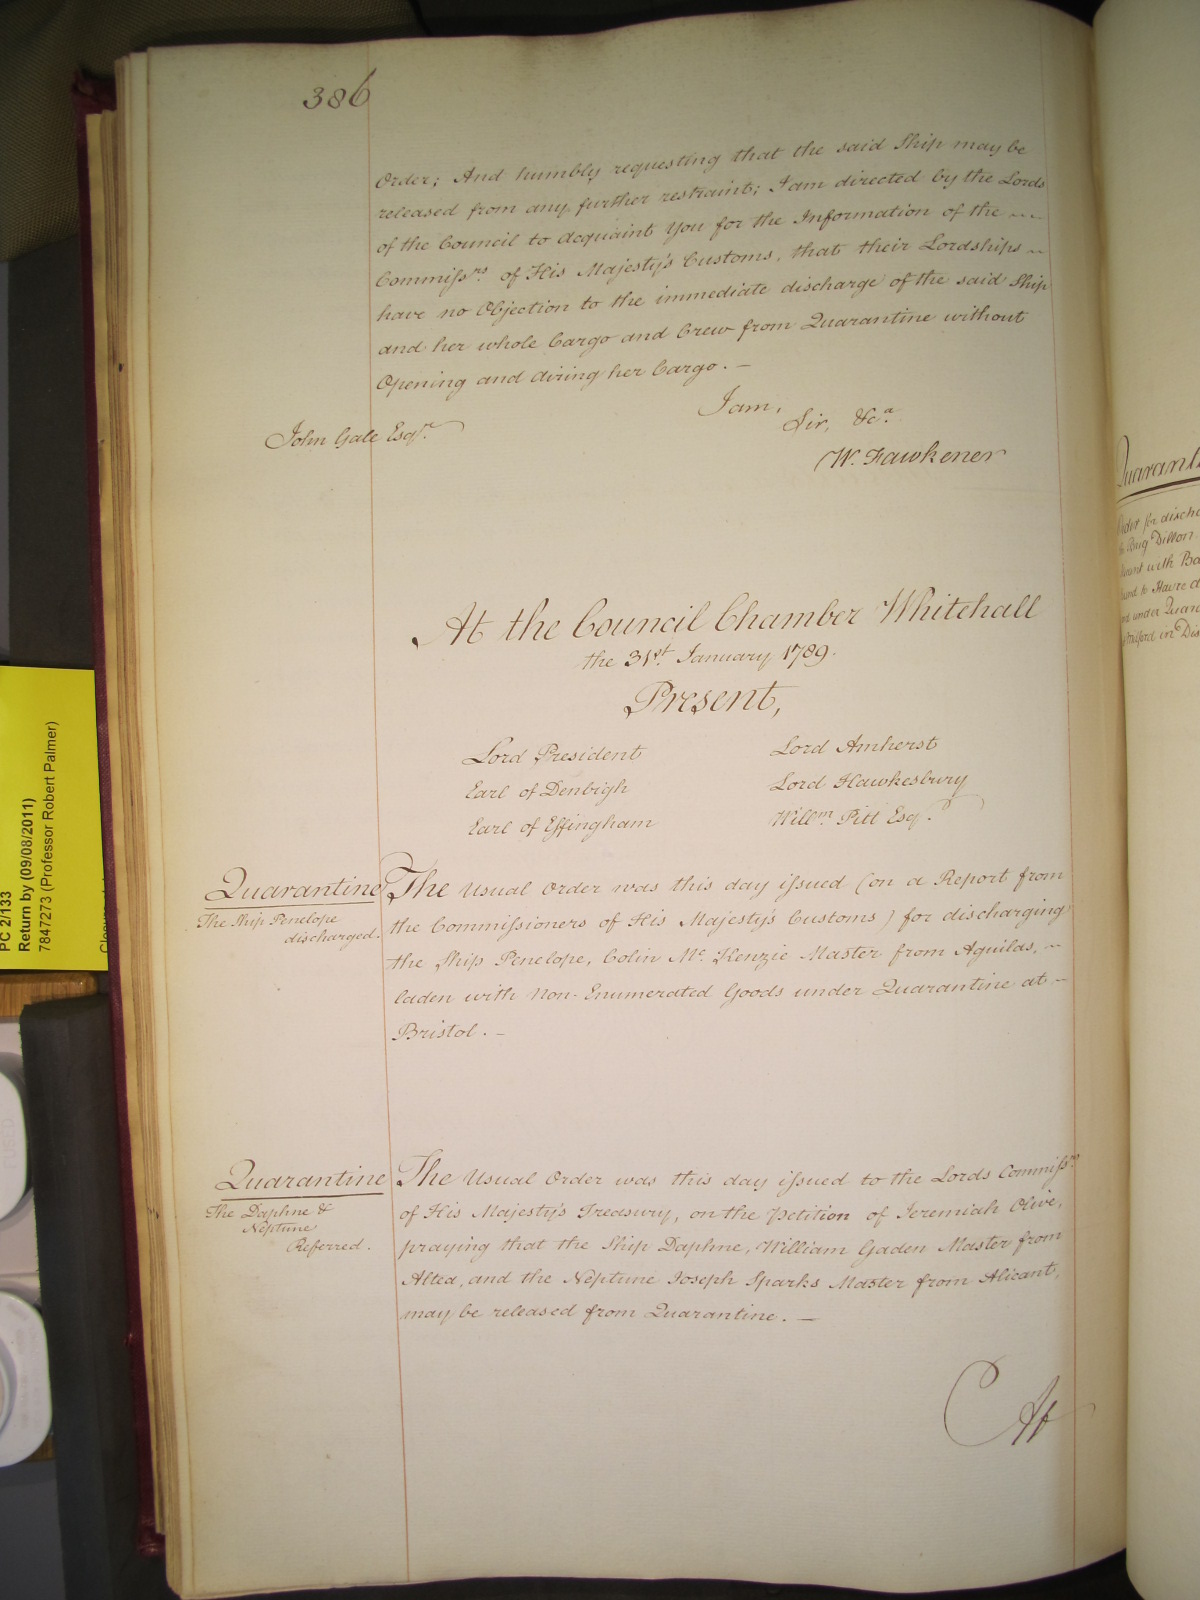 386
Order; And humbly requesting that the said Ship may be
released from any further restraint; I am directed by the Lords
of the Council to acquaint You for the Information of the
Commissrs of His Majesty's Customs, that their Lordships
have no Objection to the immediate discharge of the said Ship
and her whole Cargo and Crew from Quarantine without
Opening and airing her Cargo. —
I am,
Sir, &ca.
John Gale Esqr.
W. Fawkener
At the Council Chamber Whitehall
the 31st. January 1789.
Present,
Lord President
Lord Amherst
Earl of Denbigh
Lord Hawkesbury
Earl of Effingham
Willm Pitt Esq.
Quarantine
The Ship Penelope
discharged.
The Usual Order was this day issued (on a Report from
the Commissioners of His Majesty's Customs) for discharging
the Ship Penelope, Colin Mc. Kenzie Master from Aguilas, —
laden with Non-Enumerated Goods under Quarantine at —
Bristol. —
Quarantine
The Daphne &
Neptune
Referred.
The Usual Order was this day issued to the Lords Commissrs
of His Majesty's Treasury, on the petition of Jeremiah Olive,
praying that the Ship Daphne, William Gaden Master from
Altea, and the Neptune Joseph Sparks Master from Alicant,
may be released from Quarantine. —
At
PC 2/133
Return by (09/08/2011)
7847273 (Professor Robert Palmer)
Quarant
Order for discha
Brig Dillon
with Ba
to Havre d
under Quara
Milford in Dis